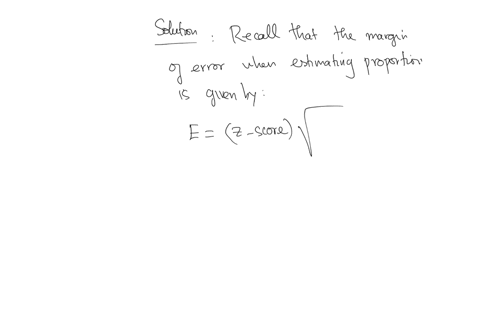 Solution : Recall that the margin
of error when estimating proportion
is given by:
E = (z-score) √